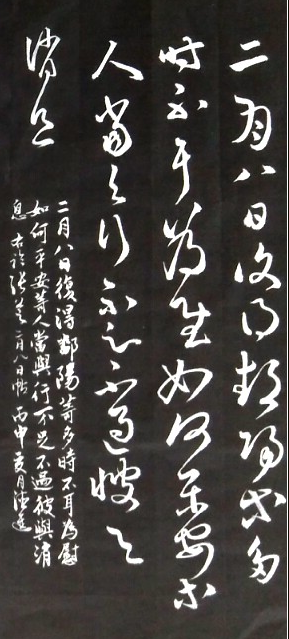 二月八日復得鄱陽等多
時不耳為慰如何平安等
人當與行不足不過彼與
消息
二月八日復得鄱陽等多時不耳為慰
如何平安等人當與行不足不過彼與消
息 右臨張芝二月八日帖 丙申夏月